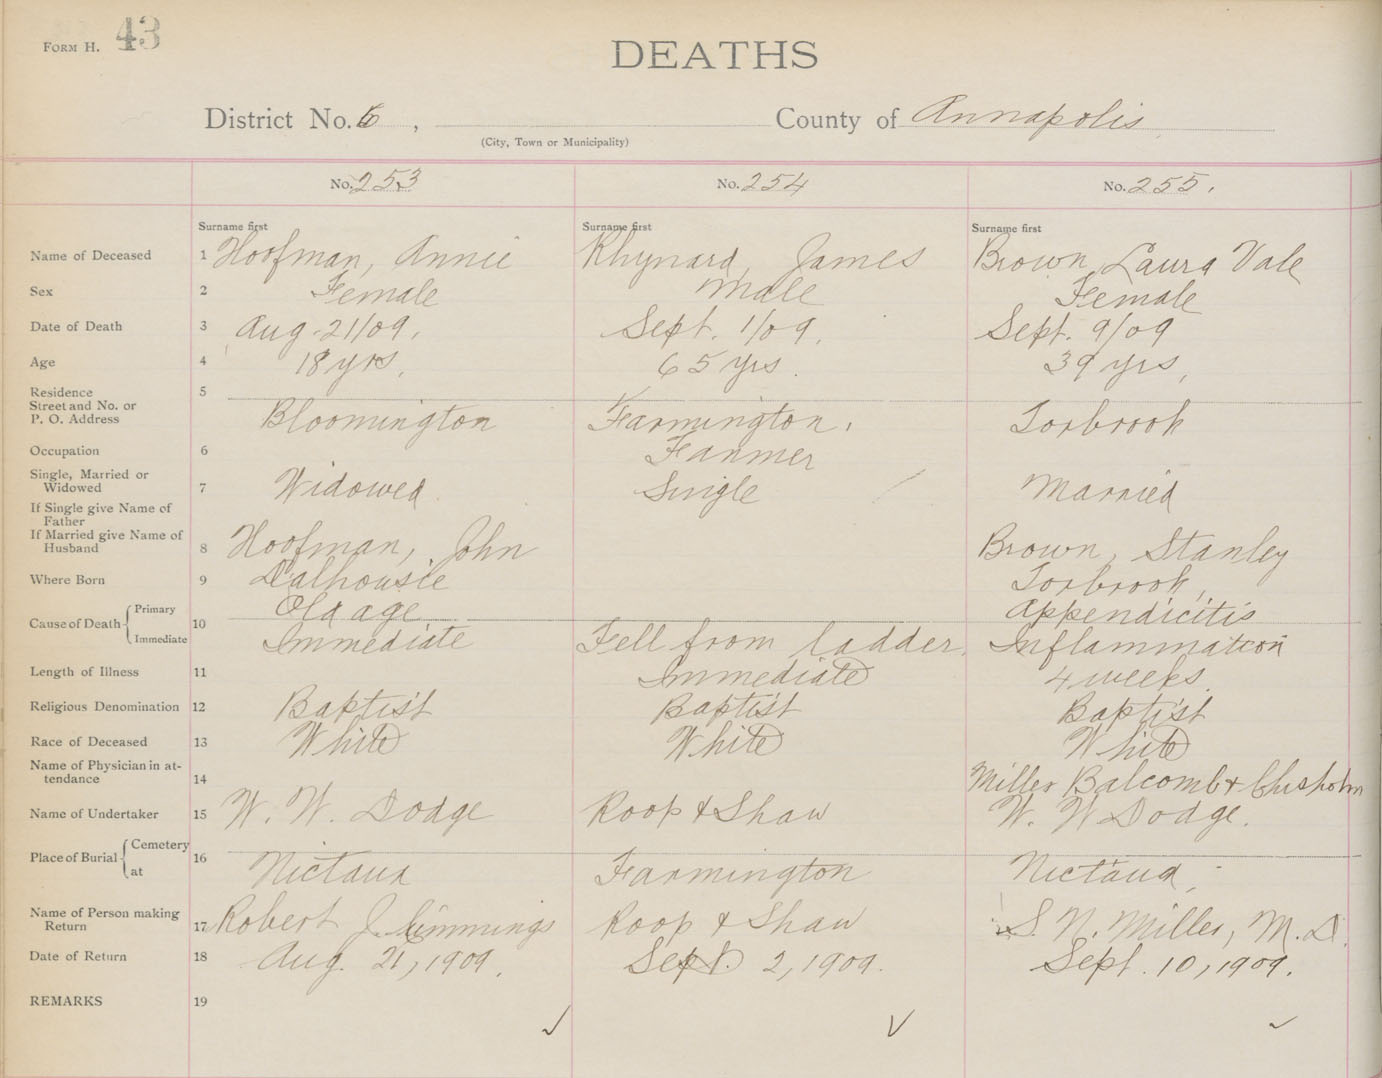 FORM H. 43
DEATHS
District No. 6, County of Annapolis
(City, Town or Municipality)
No. 253 No. 254 No. 255.
Surname first Surname first Surname first
Name of Deceased 1 Hoofman, Annie Rhynard, James Brown, Laura Vale
Sex 2 Female Male Female
Date of Death 3 Aug. 21/09. Sept. 1/09. Sept. 9/09
Age 4 18 yrs. 65 yrs. 39 yrs.
Residence 5
Street and No. or
P. O. Address Bloomington Farmington. Torbrook
Occupation 6 Farmer
Single, Married or
Widowed 7 Widowed Single Married
If Single give Name of
Father
If Married give Name of
Husband 8 Hoofman, John Brown, Stanley
Where Born 9 Dalhousie Torbrook,
Cause of Death Primary 10 Old age Appendicitis
Immediate Immediate Fell from ladder. Inflammation
Length of Illness 11 Immediate 4 weeks.
Religious Denomination 12 Baptist Baptist Baptist
Race of Deceased 13 White White White
Name of Physician in at-
tendance 14 Miller Balcomb & Chisholm
Name of Undertaker 15 W. W. Dodge Roop & Shaw W. W Dodge.
Place of Burial Cemetery 16
at Nictaux Farmington Nictaux
Name of Person making
Return 17 Robert J. Roop & Shaw S. N. Miller, M.D.
Date of Return 18 Aug. 21, 1909. Sept. 2, 1909. Sept. 10, 1909.
REMARKS 19